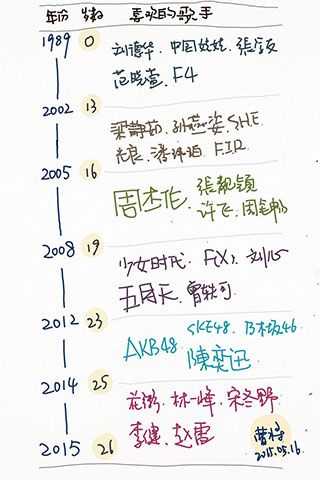 年份 岁数 喜欢的歌手
1989 0
刘德华、中国娃娃、張
范晓萱、F4
2002 13
梁静茹、孙燕姿、SHE
光良、潘玮柏、F.I.R
2005 16
周杰伦、張靓颖
许飞、周笔畅
2008 19
少女时代、F(X)、刘
五月天、曾轶可
2012 23
SKE48、乃木坂46
AKB48、陳奕迅
2014 25
花粥、林一峰、宋冬野
李健、赵雷
2015 26
2015.05.16